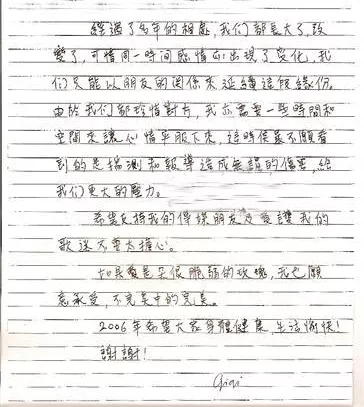 經過了多年的相處，我們都長大了，改
變了，可惜同一時間感情亦出現了變化，我
們只能以朋友的關係來延續這段緣份。
由於我們都珍惜對方，我亦需要一些時間和
空間來讓心情平服下來，這時候最不願看
到的是揣測和報導造成無謂的傷害，給
我們更大的壓力。
希望支持我的傳媒朋友及愛護我的
歌迷不要太擔心。
如果愛是朵很脆弱的玫瑰，我也願
意承受，不完美中的完美。
2006年希望大家身體健康，生活愉快！
謝謝！
Gigi